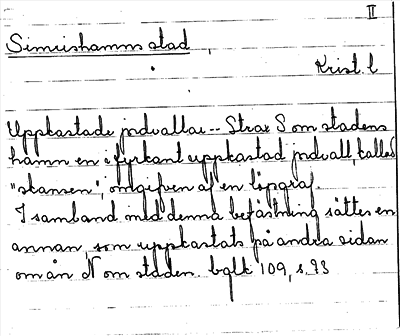 II
Simrishamns stad,
Krist. l
Uppkastade jordvallar -- Strax S om stadens
hamn en i fyrkant uppkastad jordvall, kallad
"skansen", omgifven af en löpgraf.
I samband med denna befästning sättes en
annan, som uppkastats på andra sidan
om ån N om staden. bglt 109, s. 93